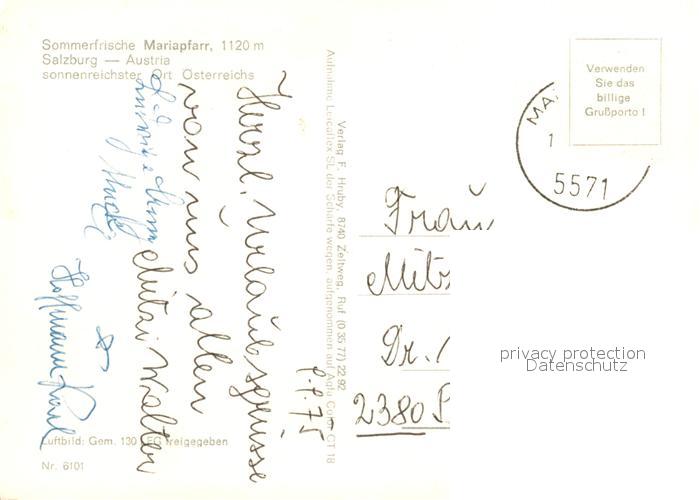 Sommerfrische Mariapfarr, 1120 m
Salzburg — Austria
sonnenreichster Ort Österreichs
Verwenden
Sie das
billige
Grußporto !
MA
1
5571
Herzl. Urlaubsgrüsse
von uns allen
Mitzi Walter
Hoffmann Karl
9.75
Verlag F. Hruby, 8740 Zeltweg, Ruf (0 35 77) 22 92
Aufnahme Leicaflex SL der Schärfe wegen, aufgenommen auf Agfa Color CT 18
Frau
Mitz
Dr.
2380
privacy protection
Datenschutz
Luftbild: Gem. 130 LFG freigegeben
Nr. 6101